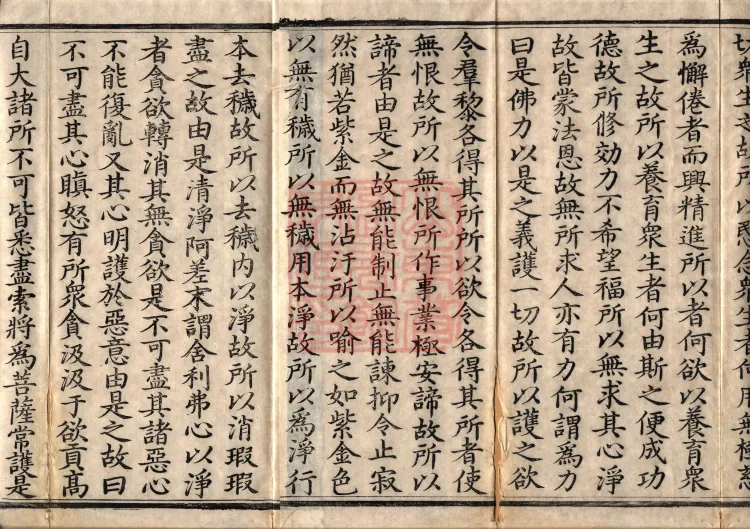 切眾生意故所以愍念眾生者何用無極慈
為懈倦者而興精進所以者何欲以養育眾
生之故所以養育眾生者何由斯之便成功
德故所修効力不希望福所以無求其心淨
故皆蒙法恩故無所求人亦有力何謂為力
曰是佛力以是之義護一切故所以護之欲
令羣黎各得其所所以欲令各得其所者使
無恨故所以無恨所作事業極安諦故所以
諦者由是之故無能制止無能諫抑令止寂
然猶若紫金而無沾汙所以喻之如紫金色
以無有穢所以無穢用本淨故所以為淨行
本去穢故所以去穢內以淨故所以消瑕瑕
盡之故由是清淨阿差末謂舍利弗心以淨
者貪欲轉消其無貪欲是不可盡其諸惡心
不能復亂又其心明護於惡意由是之故曰
不可盡其心瞋怒有所眾貪汲汲于欲貢高
自大諸所不可皆悉盡索將為菩薩常護是